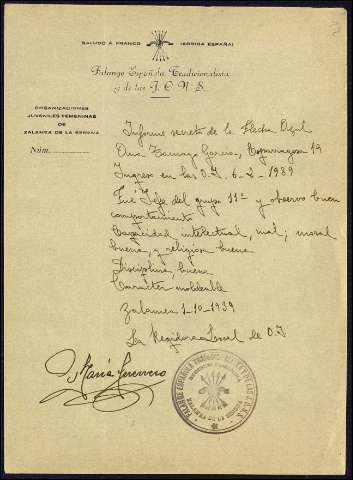 SALUDO A FRANCO ¡ARRIBA ESPAÑA!
Falange Española Tradicionalista
y de las J. O. N. S.
ORGANIZACIONES
JUVENILES FEMENINAS
DE
ZALAMEA DE LA SERENA
Núm.
Informe secreto de la Flecha Azul
Ana Tamayo Garcia, Esparragosa 19
Ingreso en las O.J. 6-2-1939
Fué Jefe del grupo 11º y observo buen
comportamiento
Capacidad intelectual, mal; moral
buena, y religiosa buena
Disciplina, buena
Caracter moldeable
Zalamea 1-10-1939
La Regidora Local de O.J
María Guerrero
FALANGE ESPAÑOLA TRADICIONALISTA Y DE LAS J.O.N.S.
ZALAMEA DE LA SERENA